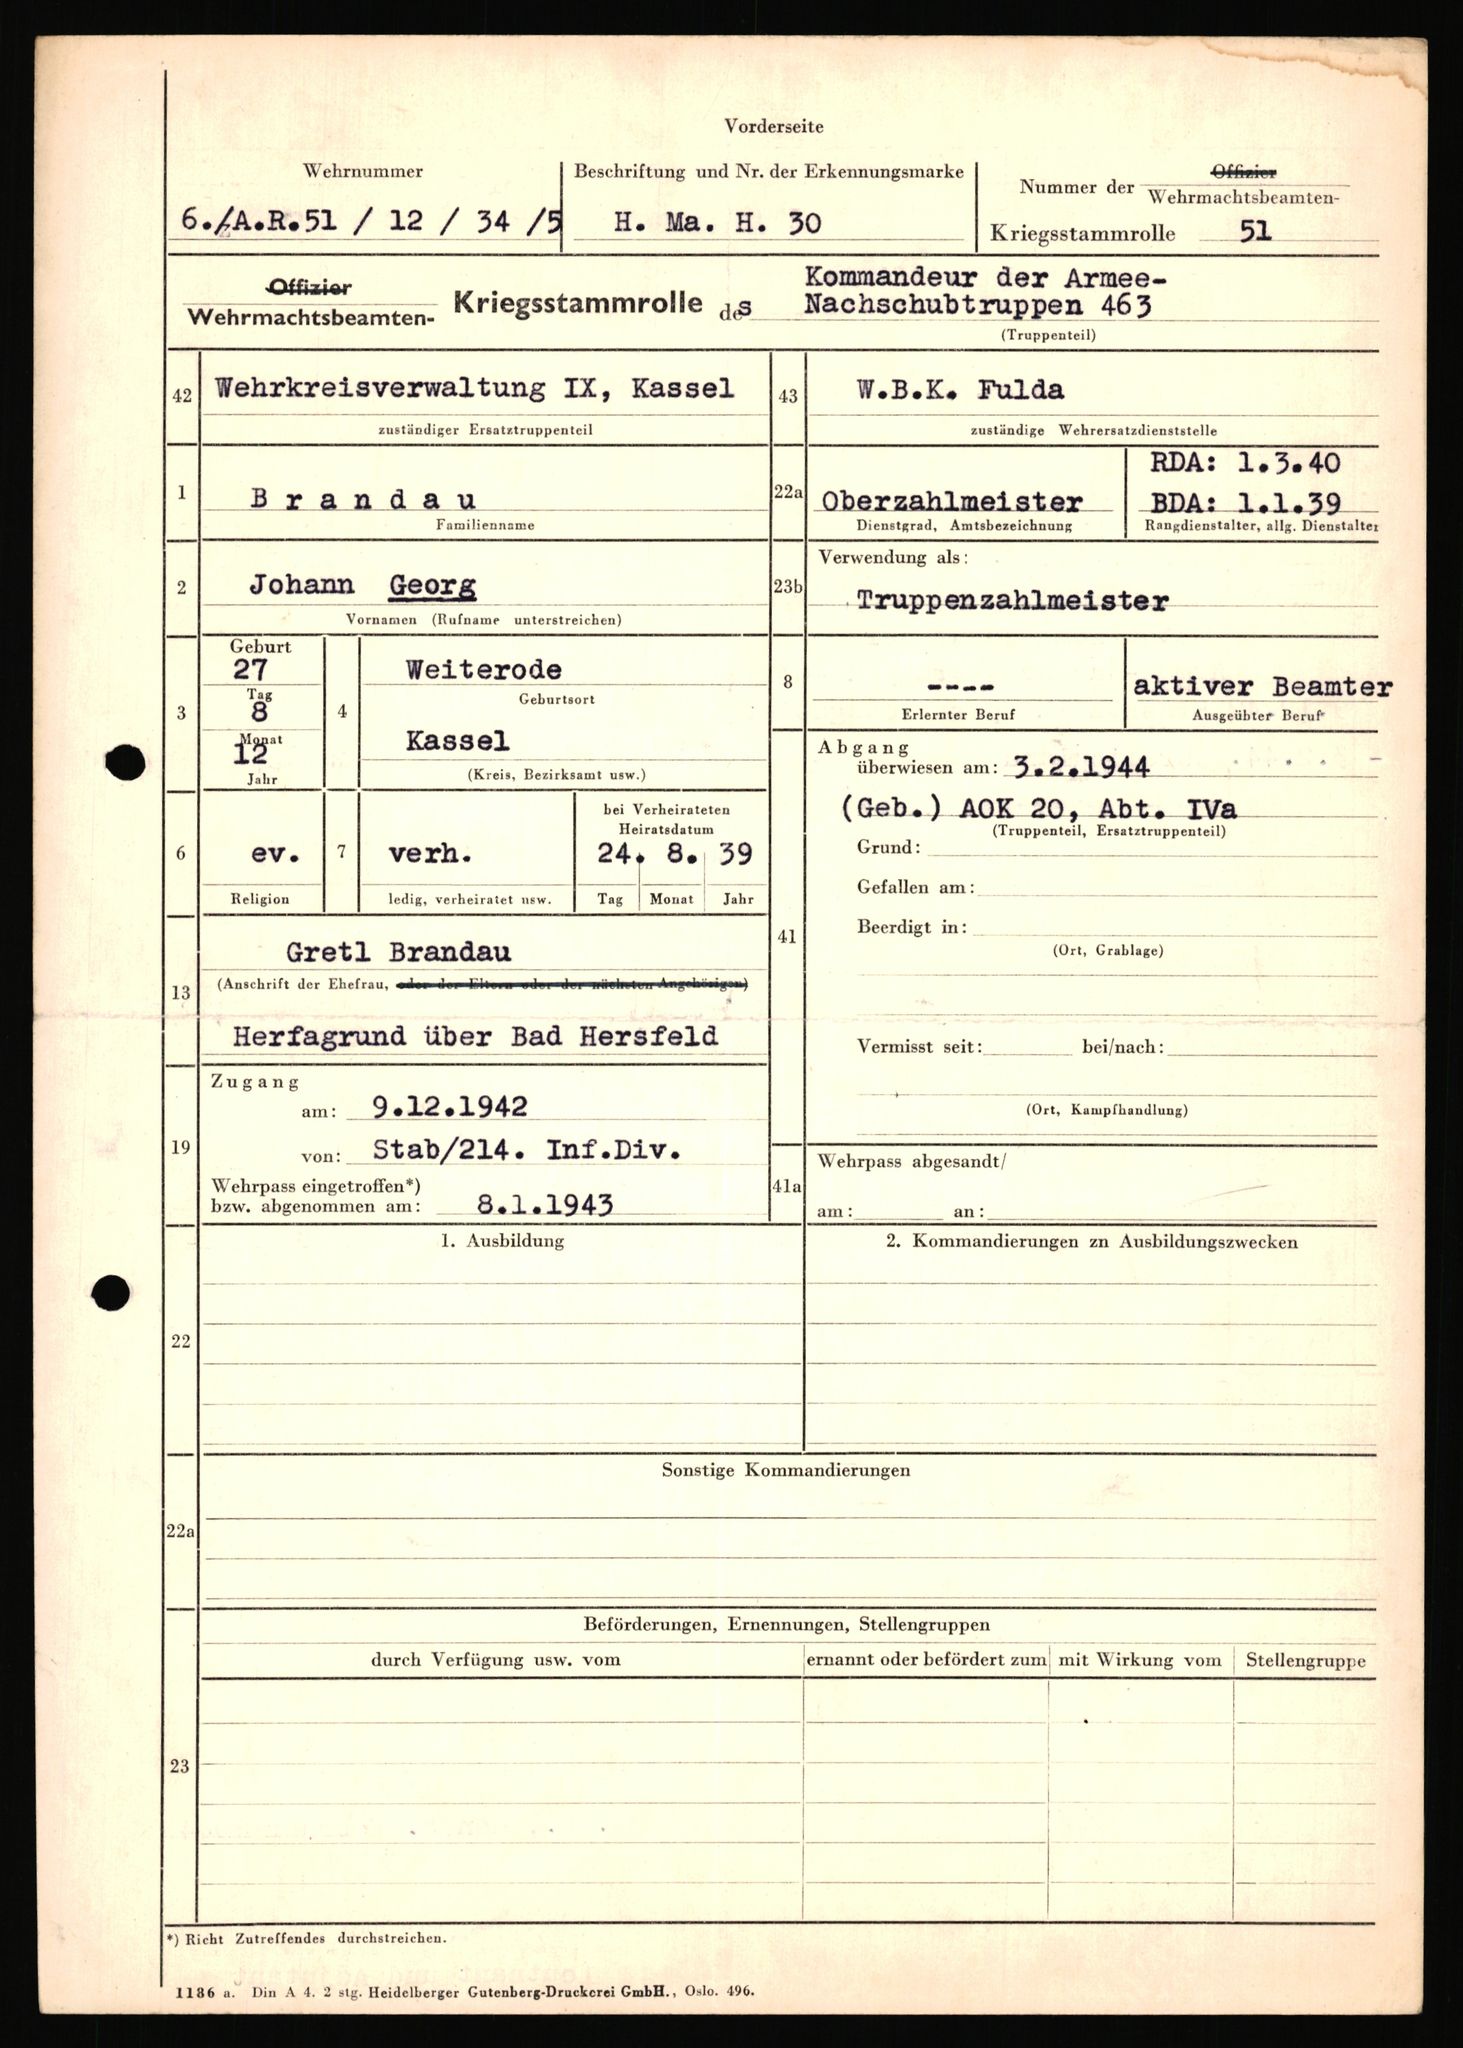 Vorderseite
Wehrnummer
6./A.R.51 / 12 / 34 /5
Beschriftung und Nr. der Erkennungsmarke
H. Ma. H. 30
Nummer der Offizier
Wehrmachtsbeamten-
Kriegsstammrolle 51
Offizier
Wehrmachtsbeamten- Kriegsstammrolle des
Kommandeur der Armee-
Nachschubtruppen 463
(Truppenteil)
42 Wehrkreisverwaltung IX, Kassel
zuständiger Ersatztruppenteil
43 W.B.K. Fulda
zuständige Wehrersatzdienststelle
1 Brandau
Familienname
22a Oberzahlmeister
Dienstgrad, Amtsbezeichnung
RDA: 1.3.40
BDA: 1.1.39
Rangdienstalter, allg. Dienstalter
2 Johann Georg
Vornamen (Rufname unterstreichen)
23b Verwendung als:
Truppenzahlmeister
3 Geburt
27
Tag
8
Monat
12
Jahr
4 Weiterode
Geburtsort
Kassel
(Kreis, Bezirksamt usw.)
8 ----
Erlernter Beruf
aktiver Beamter
Ausgeübter Beruf
6 ev.
Religion
7 verh.
ledig, verheiratet usw.
bei Verheirateten
Heiratsdatum
24. 8. 39
Tag Monat Jahr
41 Abgang
überwiesen am: 3.2.1944
(Geb.) AOK 20, Abt. IVa
(Truppenteil, Ersatztruppenteil)
Grund:
Gefallen am:
Beerdigt in:
(Ort, Grablage)
Vermisst seit: bei/nach:
(Ort, Kampfhandlung)
13 Gretl Brandau
(Anschrift der Ehefrau, oder der Eltern oder der nächsten Angehörigen)
Herfagrund über Bad Hersfeld
19 Zugang
am: 9.12.1942
von: Stab/214. Inf.Div.
Wehrpass eingetroffen*)
bzw. abgenommen am: 8.1.1943
41a Wehrpass abgesandt/
am: an:
22 1. Ausbildung
2. Kommandierungen zn Ausbildungszwecken
22a Sonstige Kommandierungen
23 Beförderungen, Ernennungen, Stellengruppen
durch Verfügung usw. vom
ernannt oder befördert zum
mit Wirkung vom
Stellengruppe
*) Richt Zutreffendes durchstreichen.
1186 a. Din A 4. 2 stg. Heidelberger Gutenberg-Druckerei GmbH., Oslo. 496.